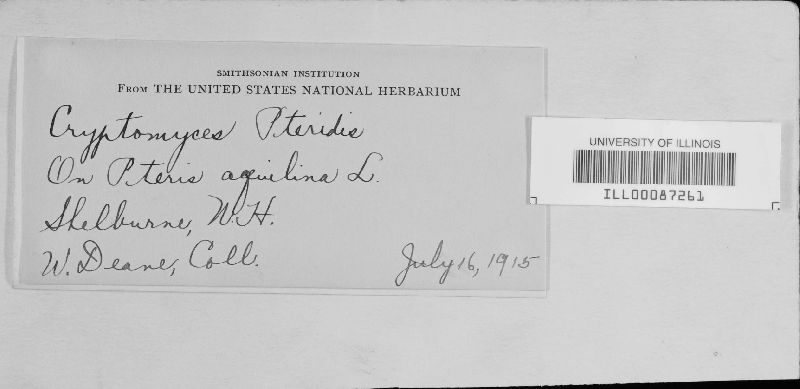 SMITHSONIAN INSTITUTION
FROM THE UNITED STATES NATIONAL HERBARIUM
Cryptomyces Pteridis
On Pteris aquilina L.
Shelburne, N.H.
W. Deane, Coll.
July 16, 1915
UNIVERSITY OF ILLINOIS
ILL00087261